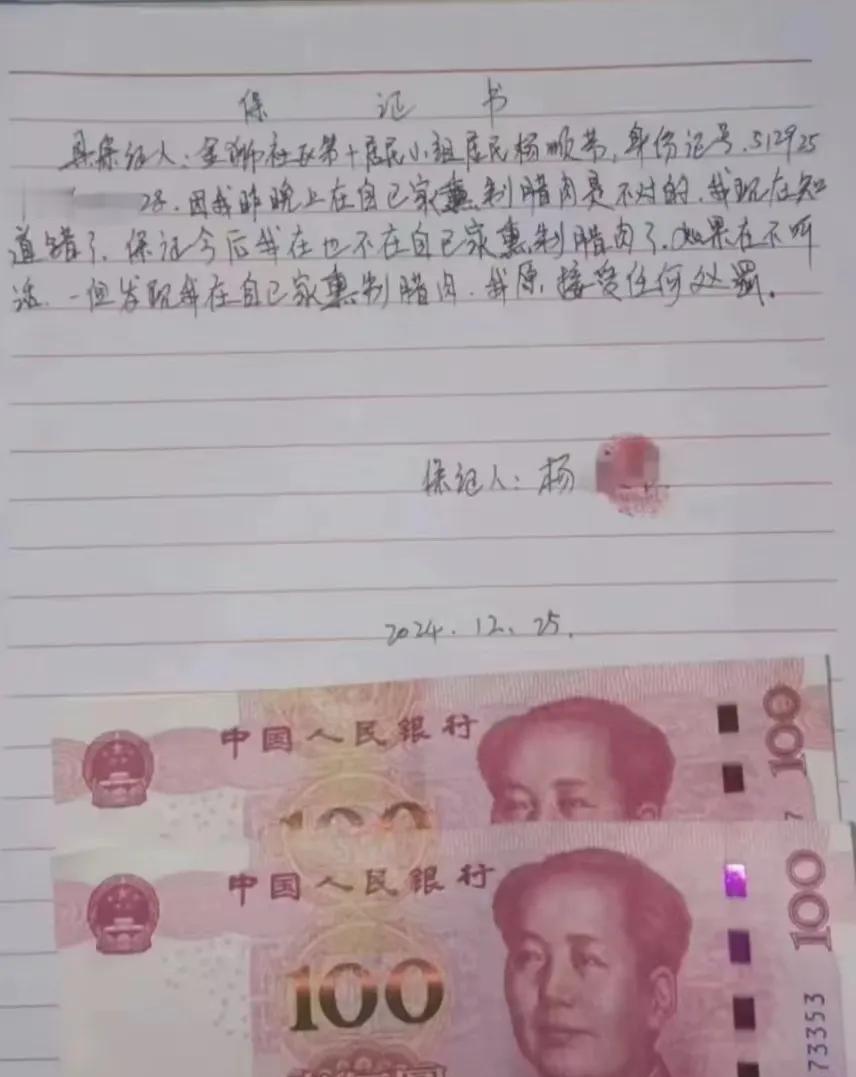 保 证 书
具保证人：金狮社区第十居民小组居民杨顺芳，身份证号.512925
28.因我昨晚上在自己家熏制腊肉是不对的.我现在知
道错了.保证今后我在也不在自己家熏制腊肉了.如果在不听
话.一但发现我在自己家熏制腊肉.我原.接受任何处罚。
保证人：杨
2024.12.25.
中国人民银行
100
100
中国人民银行
100
100
73353